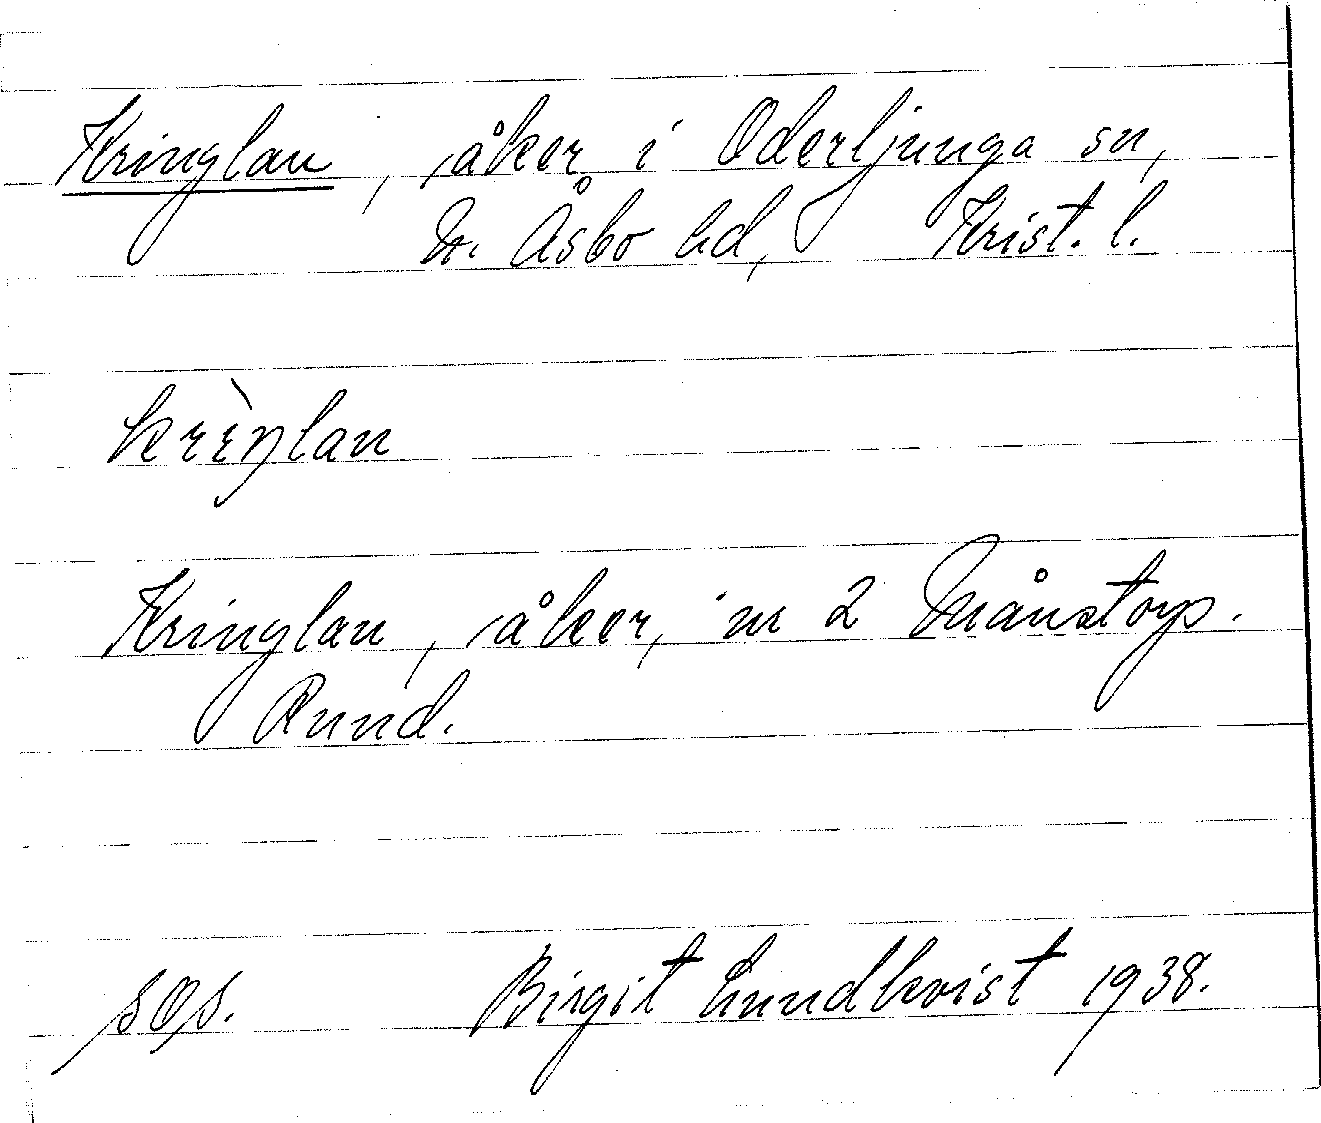 Kringlan, åker i Oderljunga sn,
N. Åsbo hd, Krist. l.
krèŋlan
Kringlan, åker, nr 2 Månstorp.
Rund.
Birgit Lundkvist 1938.